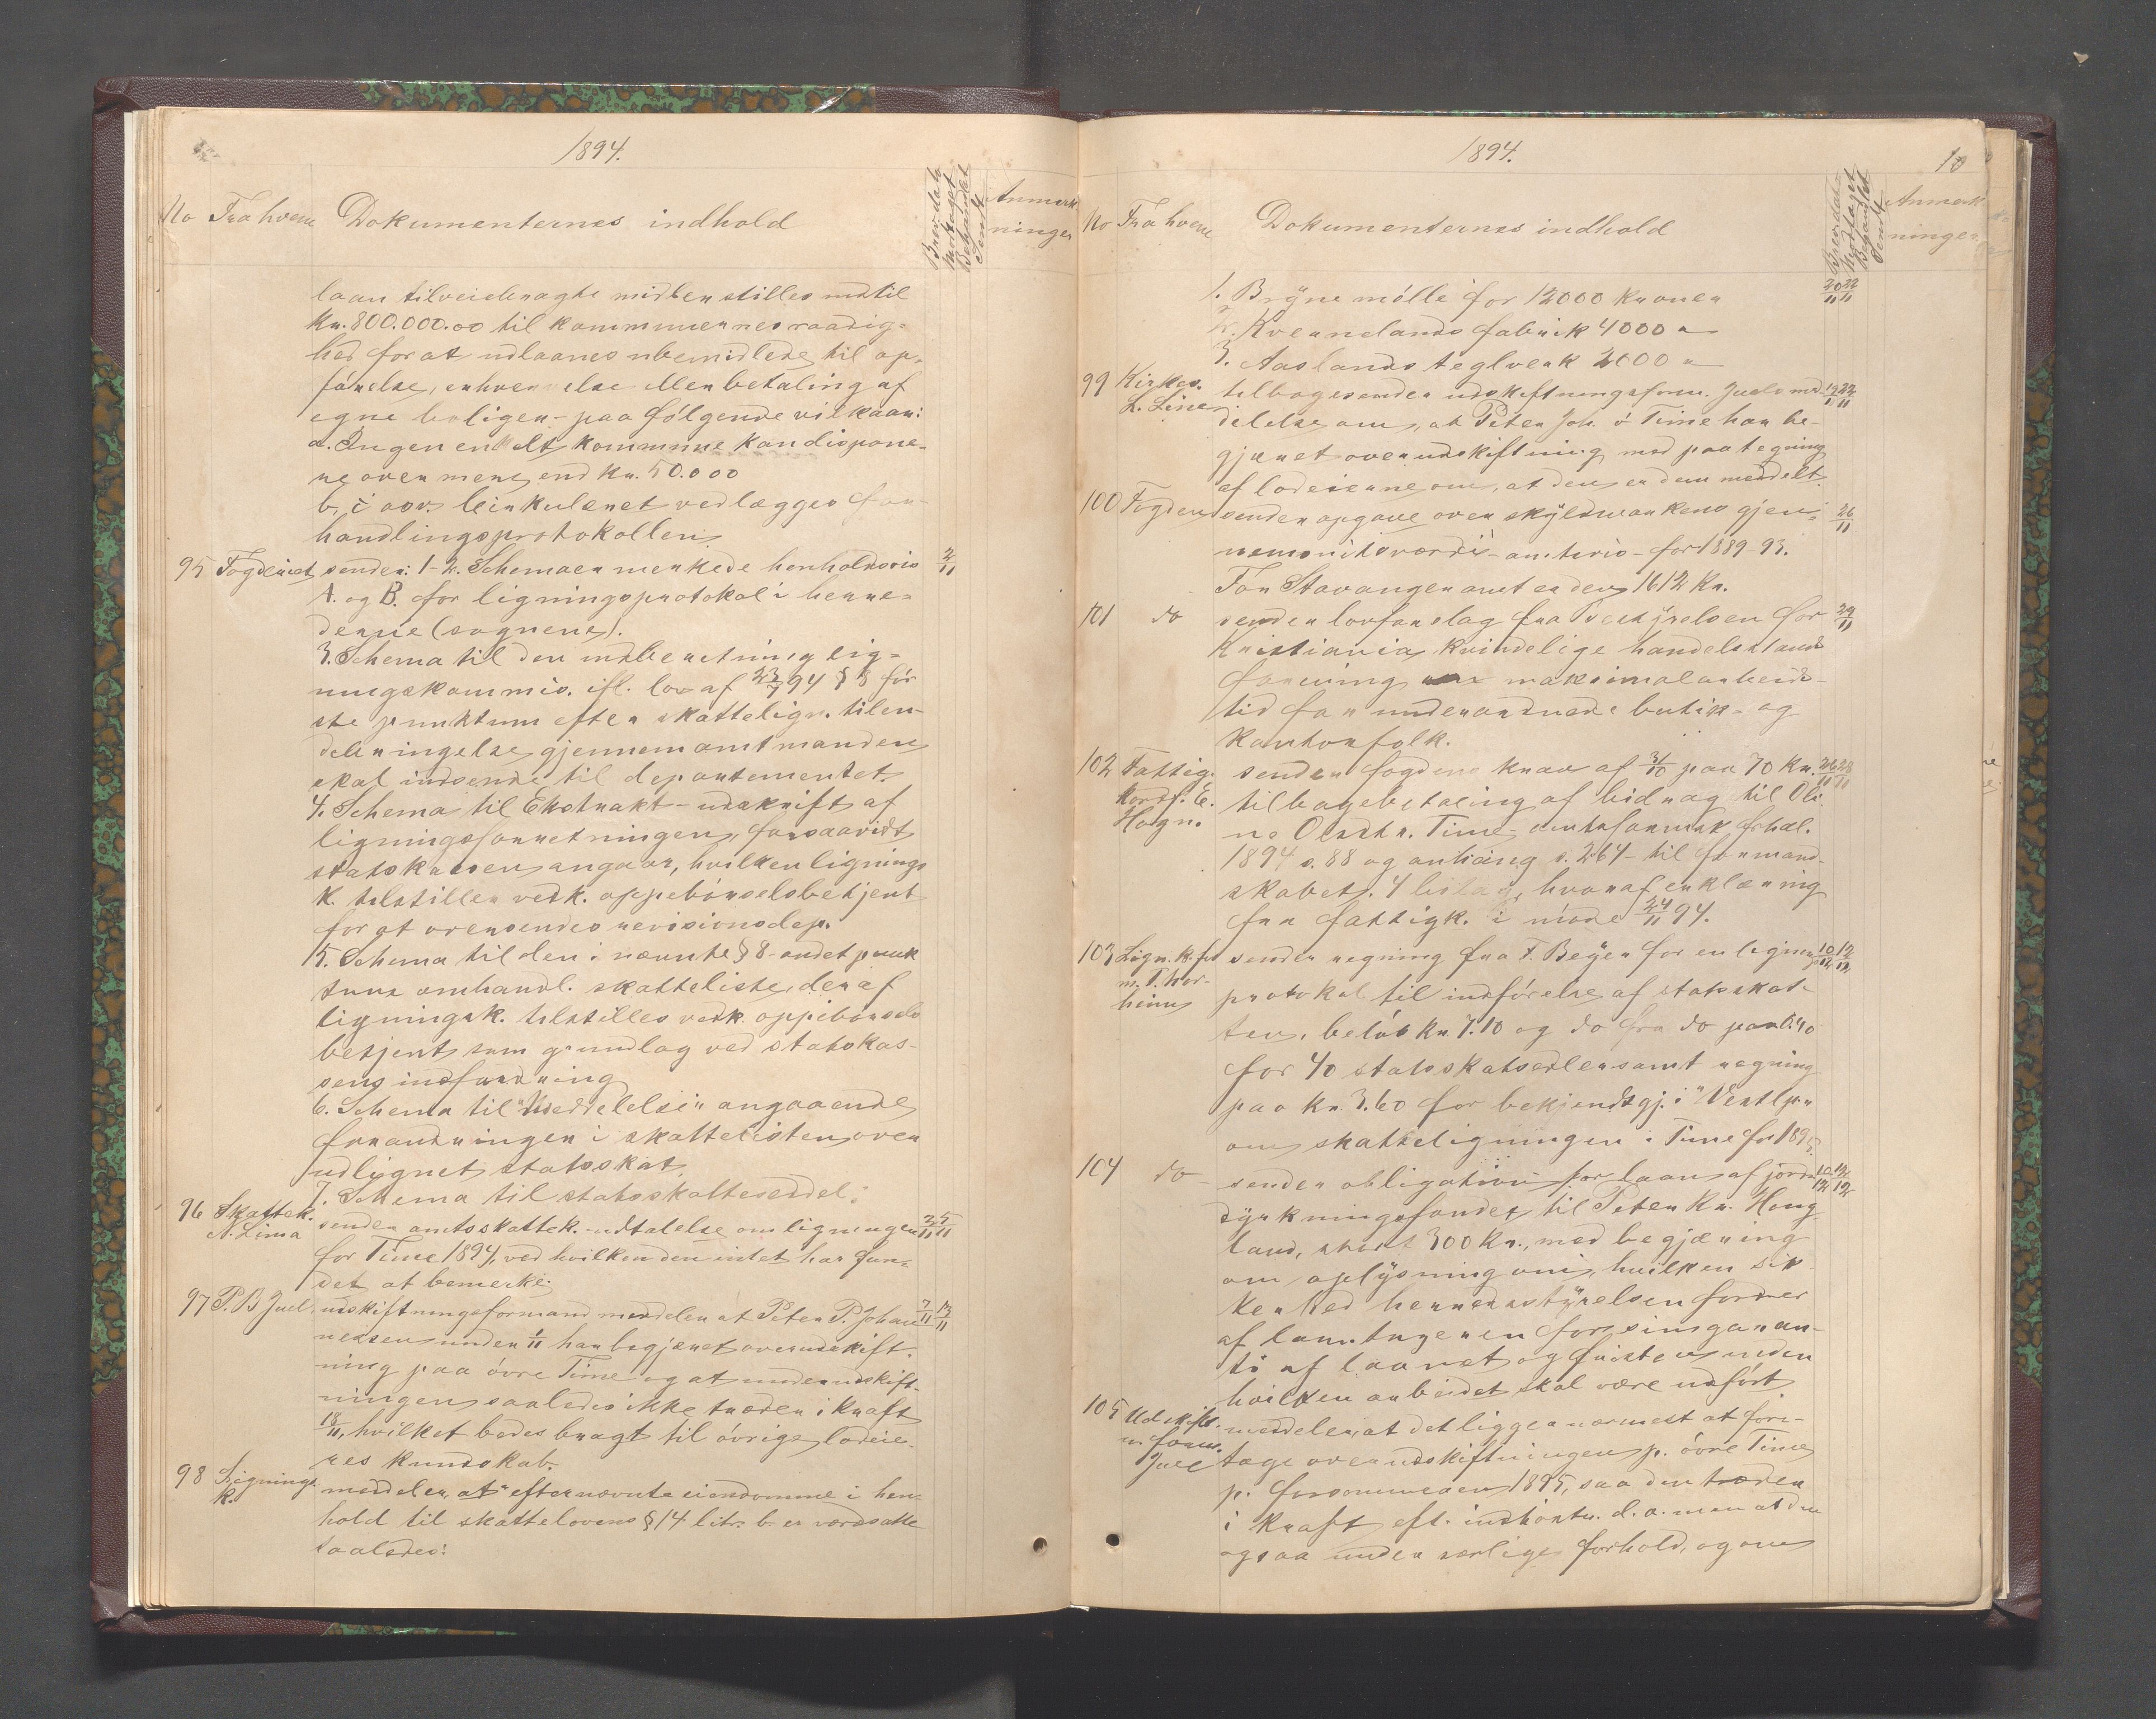 1894.
No Fra hvem Dokumenternes indhold Brevdato Modtaget Behandlet Sendt Anmærkninger
laan tilveiebragte midler stilles indtil
Kr. 800.000.00 til kommunernes raadig-
hed for at udlaanes ubemidlede til op-
førelse, erhvervelse eller betaling af
egne boliger - paa følgende vilkaar:
a. Ingen enkelt kommune kan dispone-
re over mere end Kr. 50.000
b, i
handlingsprotokollen
95 Fogderiet sender: 1-2. Schemaer merkede henholdsvis 2/11
A. og B. for ligningsprotokol i herre-
derne (sognene).
3. Schema til den indberetning lig-
ningskommis. ifl. lov af 27/7 94 § 8 før-
ste punktum efter skattelign. tilen-
debringelse gjennem amtmanden
skal indsende til departementet.
4. Schema til Ekstrakt-udskrift af
ligningsforretningen, forsaavidt
statskassen angaar, hvilken lignings
k. tilstiller vedk. oppebørselsbetjent
for at oversendes revisionsdep.
5. Schema til den i nævnte § 8 - andet punk
tum omhandl. skatteliste, der af
ligningsk. tilstilles vedk. oppebørsels
betjent som grundlag ved statskas-
sens indfordring
6. Schema til "Meddelelse" angaaende
forandringer i skattelisten over
udlignet statsskat.
7. Schema til statsskatteseddel.
96 Skattek. N. Lima sender amtsskattek. udtalelse om ligningen 2/11 5/11
for Time 1894, ved hvilken den intet har fun-
det at bemerke.
97 P. B Juel, udskiftningsformand meddeler at Peter P. Johan 7/11 13/11
nessen under 1/11 har begjæret overudskift-
ning paa øvre Time og at underudskift-
ningen saaledes ikke træder i kraft
18/11, hvilket bedes bragt til øvrige lodeie-
res kundskab.
98 Lignings k. meddeler, at efternævnte eiendomme i hen-
hold til skattelovens § 14 litr. b. er værdsatte
saaledes:
1894. 10
No Fra hvem Dokumenternes indhold Brevdato Modtaget Behandlet Sendt Anmærkninger
1. Bryne mølle for 12000 kroner 20/11 22/11
2. Kvernelands fabrik 4000 "
3. Aaslands teglverk 2000 "
99 Kirkes. L. Line tilbagesender udskiftningsform. Juels med- 19/11 22/11
delelse om, at Peter Joh. ø Time har be-
gjæret overudskiftning med paategning
af lodeierne om, at den er dem meddelt.
100 Fogden sender opgave over skyldmarkens gjen- 26/11
nemsnitsværdi - amtsvis - for 1889-93.
For Stavanger amt er den 1612 Kr.
101 do sender lovforslag fra Bestyrelsen for 29/11
Kristiania kvindelige handelsstands
forening maksimalarbeids-
tid for underordnede butik- og
kontorfolk.
102 Fattig. Kordf. E. Hogn. sender fogdens krav af 31/10 paa 70 Kr. 26/11 28/11
tilbagebetaling af bidrag til Oli
ne Olsdtr. Time - amtsformsk. frhdl.
1894 s. 88 og anhang s. 264 - til formand-
skabet. 4 bilag, hvoraf erklæring
fra fattigk. i møde 24/11 94.
103 Lign. k. fr m. T. Hor- heim sender regning fra F. Beyer for en lignings 10/12 12/12
protokol til indførelse af statsskat-
ten, beløb kr 7.10 og do fra do paa 0.40
for 40 statsskatsedler samt regning
paa Kr. 3.60 for bekjendtgj. i "Vestlp."
om skatteligningen i Time for 1895.
104 do sender obligation for laan af jord- 10/12 12/12
dyrkningsfondet til Peter Kr. Haug-
land, stort 300 Kr., med begjæring
om oplysning om, hvilken sik-
kerhed herredsstyrelsen fordrer
af launtageren for sin garan-
ti af laanet og fristen inden
hvilken arbeidet skal være udført
105 Udskift. n. form. Juel meddeler, at det ligger nærmest at fore-
tage overudskiftningen p. øvre Time
p. forsommeren 1895, saa den træder
i kraft eft. indhøstn. d. a. men at den
ogsaa under særlige forhold, og om